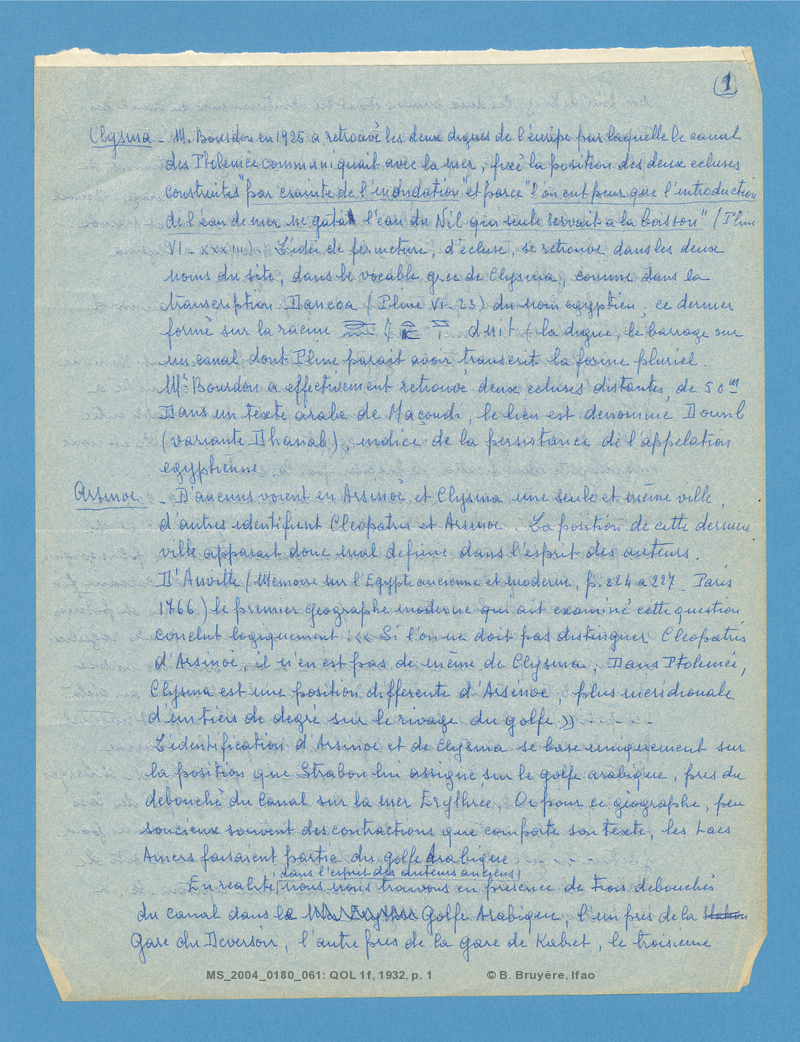 1
Clysma - M. Bourdon en 1925 a retrouvé les deux digues de l'euripe par laquelle le canal
des Ptolemée communiquait avec la mer, fixé la position des deux ecluses
construites "par crainte de l'inondation" et parce "l'on eut peur que l'introduction
de l'eau de mer ne gatat l'eau du Nil qui seule servait a la boisson" (Pline
VI - XXXIII). L'idée de fermeture, d'écluse, se retrouve dans les deux
noms du site, dans le vocable grec de Clysma, comme dans la
transcription Daneoa (Pline VI. 23) du nom egyptien, ce dernier
formé sur la racine dnit (la digue, le barrage sur
un canal dont Pline parait avoir transcrit la forme pluriel.
Mr Bourdon a effectivement retrouvé deux ecluses distantes de 50m
Dans un texte arabe de Maçoudi, le lieu est denommé Dounb
(variante Dhanab), indice de la persistance de l'appelation
egyptienne
Arsinoe. - D'aucuns voient en Arsinoë et Clysma une seule et même ville,
d'autres identifient Cleopatris et Arsinoe. La position de cette derniere
ville apparait donc mal definie dans l'esprit des auteurs.
D'Anville (Memoire sur l'Egypte ancienne et moderne, p. 224 a 227. Paris
1766.) le premier geographe moderne qui ait examiné cette question
conclut logiquement : << Si l'on ne doit pas distinguer Cleopatris
d'Arsinoë, il n'en est pas de même de Clysma. Dans Ptolemée,
Clysma est une position differente d'Arsinoë, plus meridionale
d'un tiers de degré sur le rivage du golfe >> . - - -
L'identification d'Arsinoë et de Clysma se base uniquement sur
la position que Strabon lui assigne sur le golfe arabique, pres du
debouché du canal sur la mer Erythrée. Or pour ce géographe, peu
soucieux souvent des contractions que comporte son texte, les Lacs
Amers faisaient partie du golfe Arabique
(dans l'esprit des auteurs anciens)
En realité, nous nous trouvons en presence de trois debouchés
du canal dans le Golfe Arabique, l'un pres de la station
Gare du Deversoir, l'autre pres de la gare de Kabret, le troisieme
MS_2004_0180_061: QOL 1f, 1932, p. 1 © B. Bruyère, Ifao